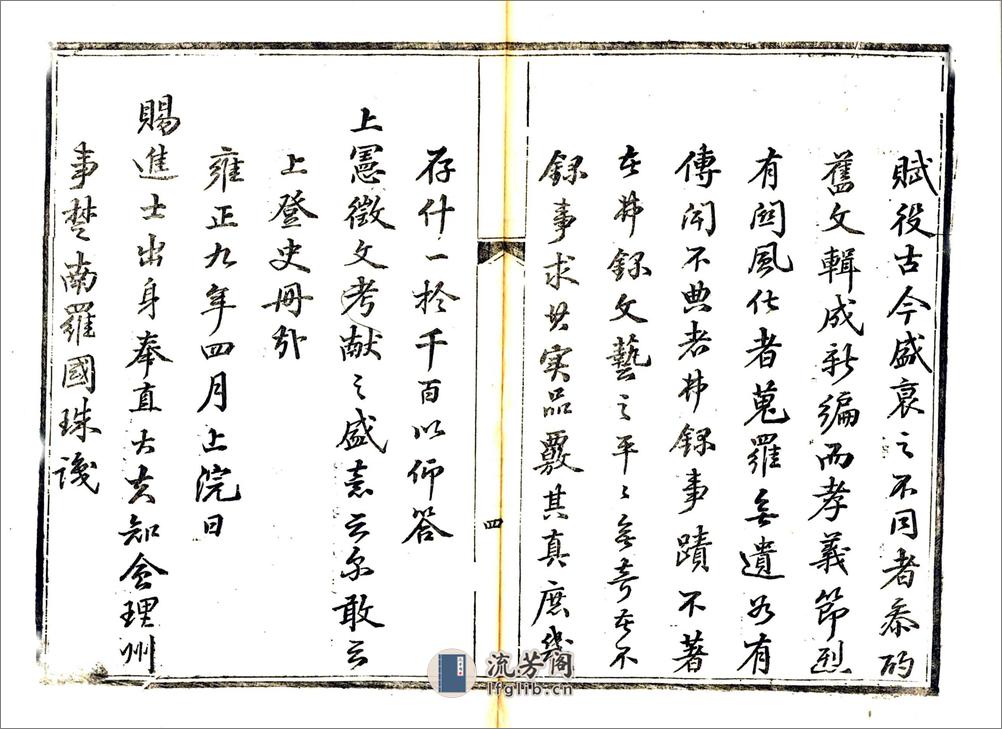 賦役古今盛衰之不同者叅酌
舊文輯成新編而孝義節烈
有関風化者蒐羅無遺若有
傳聞不典者弗録事蹟不著
者弗録文藝之平之無奇者不
録事求其实品覈其真庶幾
四
存什一於千百以仰答
上憲徵文考献之盛意云尔敢云
上登史冊哉
雍正九年四月上浣日
賜進士出身奉直大夫知會理州
事楚南羅國珠識
流芳阁
lfglib.cn